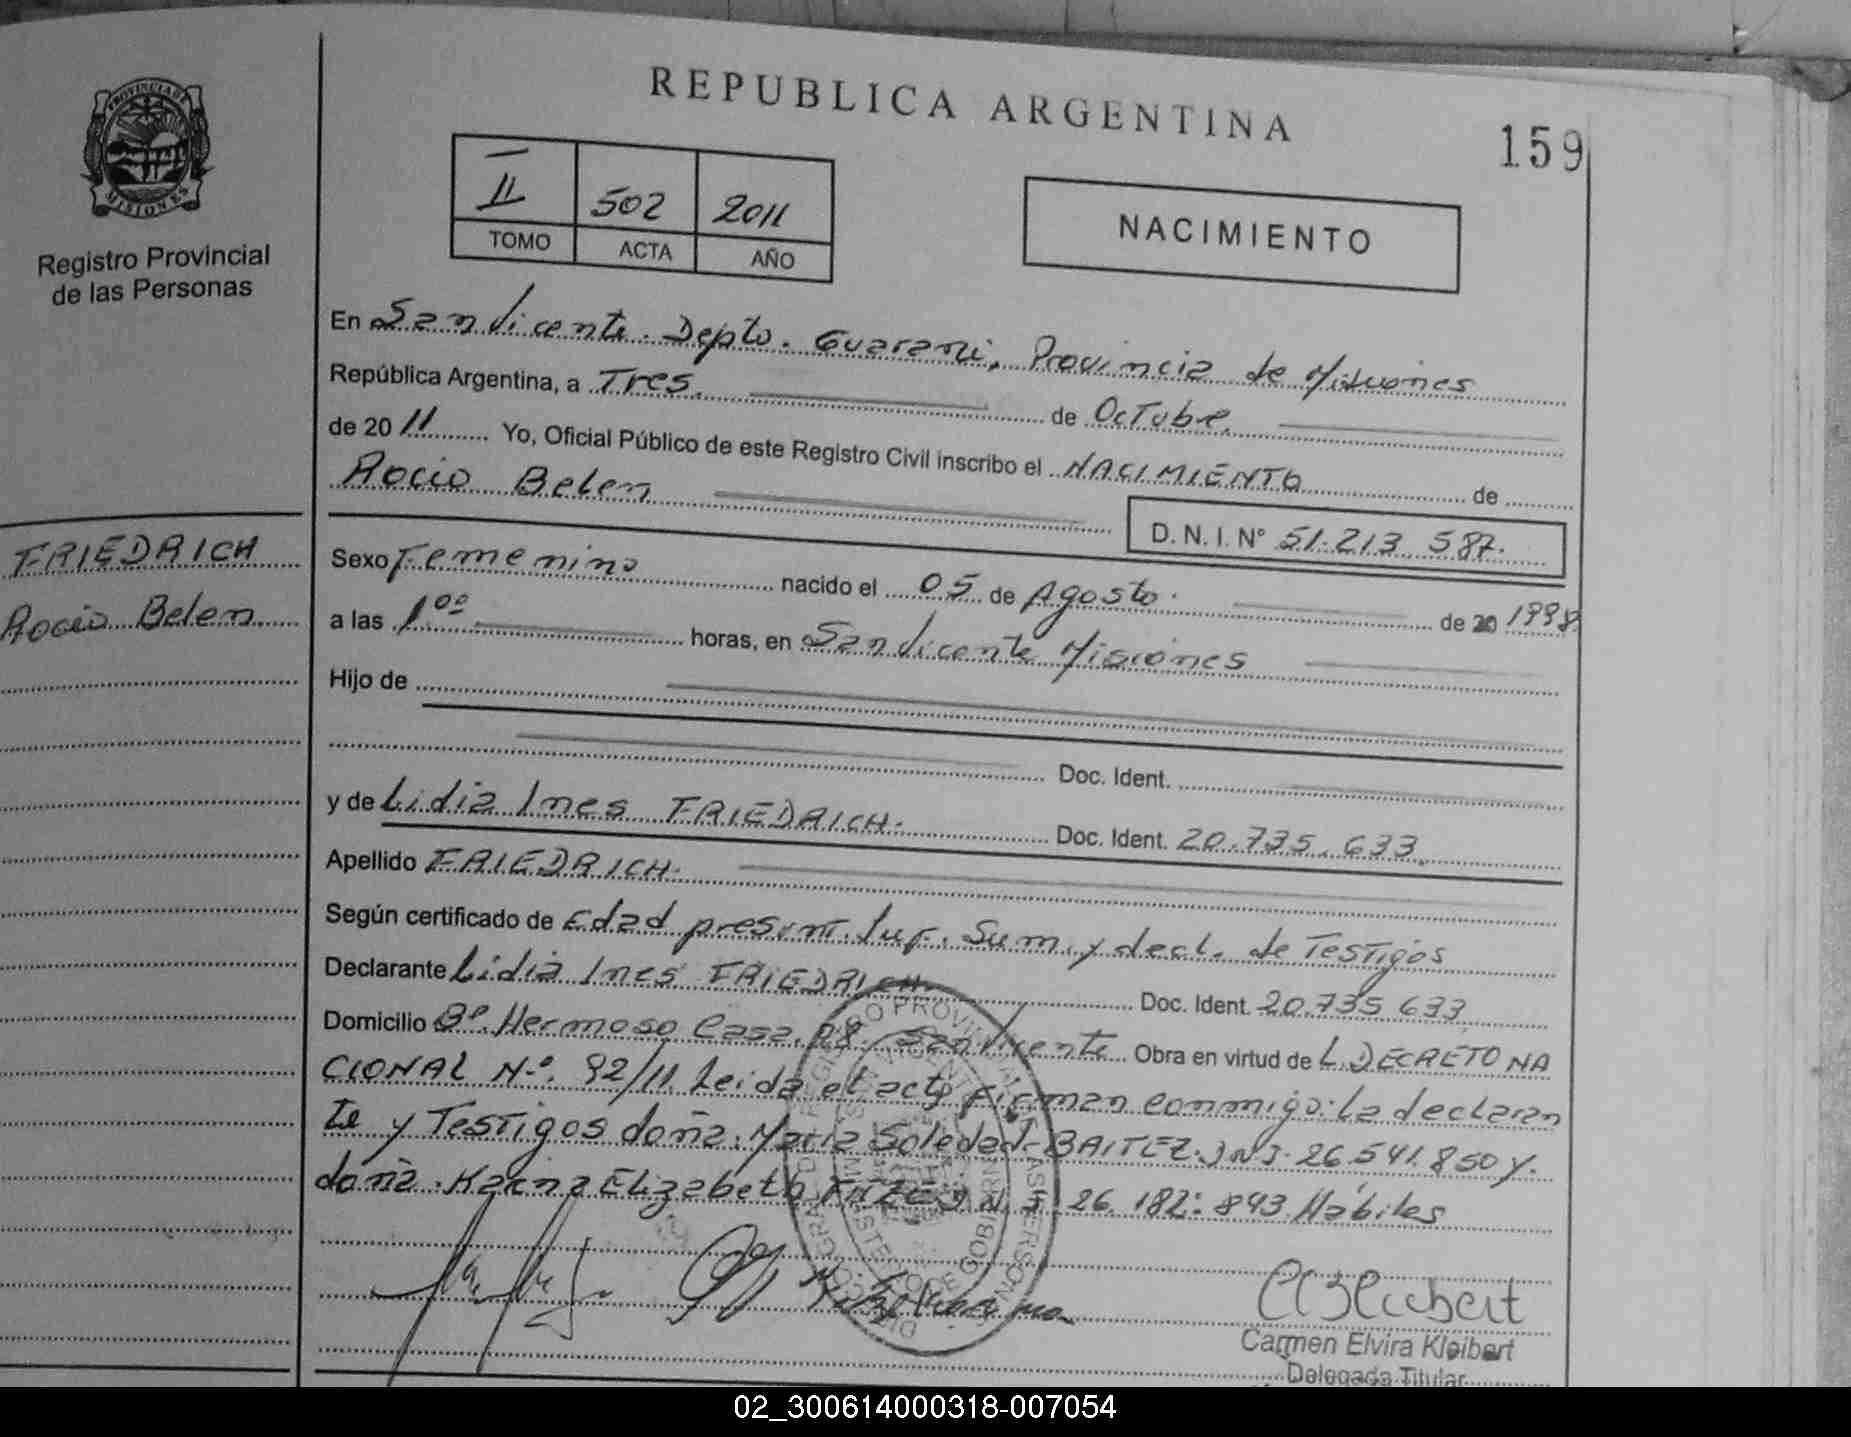 REPUBLICA ARGENTINA
159
PROVINCIA DE
MISIONES
Registro Provincial
de las Personas
II 502 2011
TOMO ACTA AÑO
NACIMIENTO
En San Vicente. Depto. Guarani, Provincia de Misiones
República Argentina, a Tres de Octubre
de 2011 Yo, Oficial Público de este Registro Civil inscribo el NACIMIENTO de
Rocio Belen
D. N. I. N° 51.213.587.
FRIEDRICH
Rocio Belen
Sexo Femenino nacido el 05 de Agosto de 20 1998
a las 1.00 horas, en San Vicente Misiones
Hijo de
Doc. Ident.
y de Lidia Ines FRIEDRICH. Doc. Ident. 20.735.633.
Apellido FRIEDRICH.
Según certificado de Edad presunt. Sum. y decl. de Testigos
Declarante Lidia Ines FRIEDRICH. Doc. Ident. 20.735 633
Domicilio Bº. Hermoso Casa 28. San Vicente Obra en virtud de L. DECRETO NA
CIONAL Nº. 92/11 Leida el acta firman conmigo: La declaran
te y Testigos doña: Maria Soledad BAITEZ. 26.541.850 y.
doña. Karina Elizabeth 26.182.843 Habiles
CEKleibert
Carmen Elvira Kleibert
Delegada Titular
02_300614000318-007054